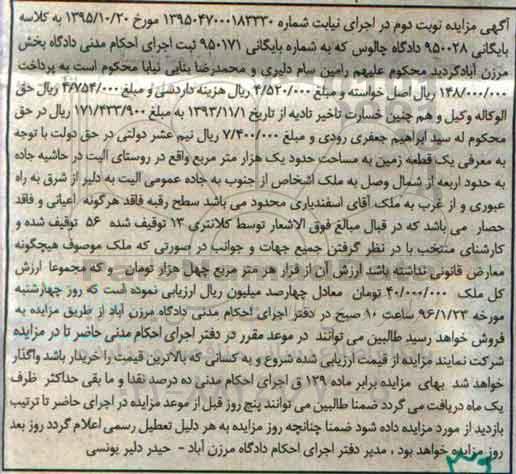 آگهی مزایده نوبت دوم در اجرای نیابت شماره ۱۳۹۵۰۴۷۰۰۰۱۸۳۳۳۰ مورخ ۱۳۹۵/۱۰/۲۰ به کلاسه
بایگانی ۹۵۰۰۲۸ دادگاه چالوس که به شماره بایگانی ۹۵۰۱۷۱ ثبت اجرای احکام مدنی دادگاه بخش
مرزن آباد گردید محکوم علیهم رامین سام دلیری و محمدرضا بنایی نیابا محکوم است به پرداخت
۱۴۸/۰۰۰/۰۰۰ ریال اصل خواسته و مبلغ ۴/۵۲۰/۰۰۰ ریال هزینه دادرسی و مبلغ ۴/۷۵۴/۰۰۰ ریال حق
الوکاله وکیل و هم چنین خسارت تاخیر تادیه از تاریخ ۱۳۹۳/۱۱/۱ به مبلغ ۱۷۱/۴۳۳/۹۰۰ ریال در حق
محکوم له سید ابراهیم جعفری رودی و مبلغ ۷/۴۰۰/۰۰۰ ریال نیم عشر دولتی در حق دولت با توجه
به معرفی یک قطعه زمین به مساحت حدود یک هزار متر مربع واقع در روستای الیت در حاشیه جاده
به حدود اربعه از شمال وصل به ملک اشخاص از جنوب به جاده عمومی الیت به دلیر از شرق به راه
عبوری و از غرب به ملک آقای اسفندیاری محدود می باشد سطح رقبه فاقد هرگونه اعیانی و فاقد
حصار می باشد که در قبال مبالغ فوق الاشعار توسط کلانتری ۱۳ توقیف شده ۵۶ توقیف شده و
کارشنای منتخب با در نظر گرفتن جمیع جهات و جوانب در صورتی که ملک موصوف هیچگونه
معارض قانونی نداشته باشد ارزش آن از قرار هر متر مربع چهل هزار تومان و که مجموعا ارزش
کل ملک ۴۰/۰۰۰/۰۰۰ تومان معادل چهارصد میلیون ریال ارزیابی نموده است که روز چهارشنبه
مورخه ۹۶/۱/۲۳ ساعت ۱۰ صبح در دفتر اجرای احکام مدنی دادگاه مرزن آباد از طریق مزایده به
فروش خواهد رسید طالبین می توانند در موعد مقرر در دفتر اجرای احکام مدنی حاضر تا در مزایده
شرکت نمایند مزایده از قیمت ارزیابی شده شروع و به کسانی که بالاترین قیمت را خریدار باشد واگذار
خواهد شد بهای مزایده برابر ماده ۱۲۹ ق اجرای احکام مدنی ده درصد نقدا و ما بقی حداکثر ظرف
یک ماه دریافت می گردد ضمنا طالبین می توانند پنج روز قبل از موعد مزایده در اجرای حاضر تا ترتیب
بازدید از مورد مزایده داده شود ضمنا چنانچه روز مزایده به هر دلیل تعطیل رسمی اعلام گردد روز بعد
روز مزایده خواهد بود ، مدیر دفتر اجرای احکام دادگاه مرزن آباد - حیدر دلیر یونسی